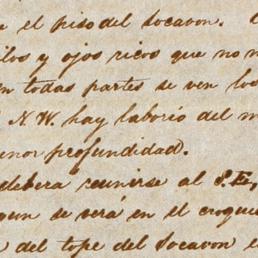 e el piso del Socavon.
ilos y ojos ricos que no
en todas partes se ven los
N.W. hay laborio del m
enor profundidad.
debera reunirse al S.E,
gun se verá en el croqui
a del tope del Socavon e